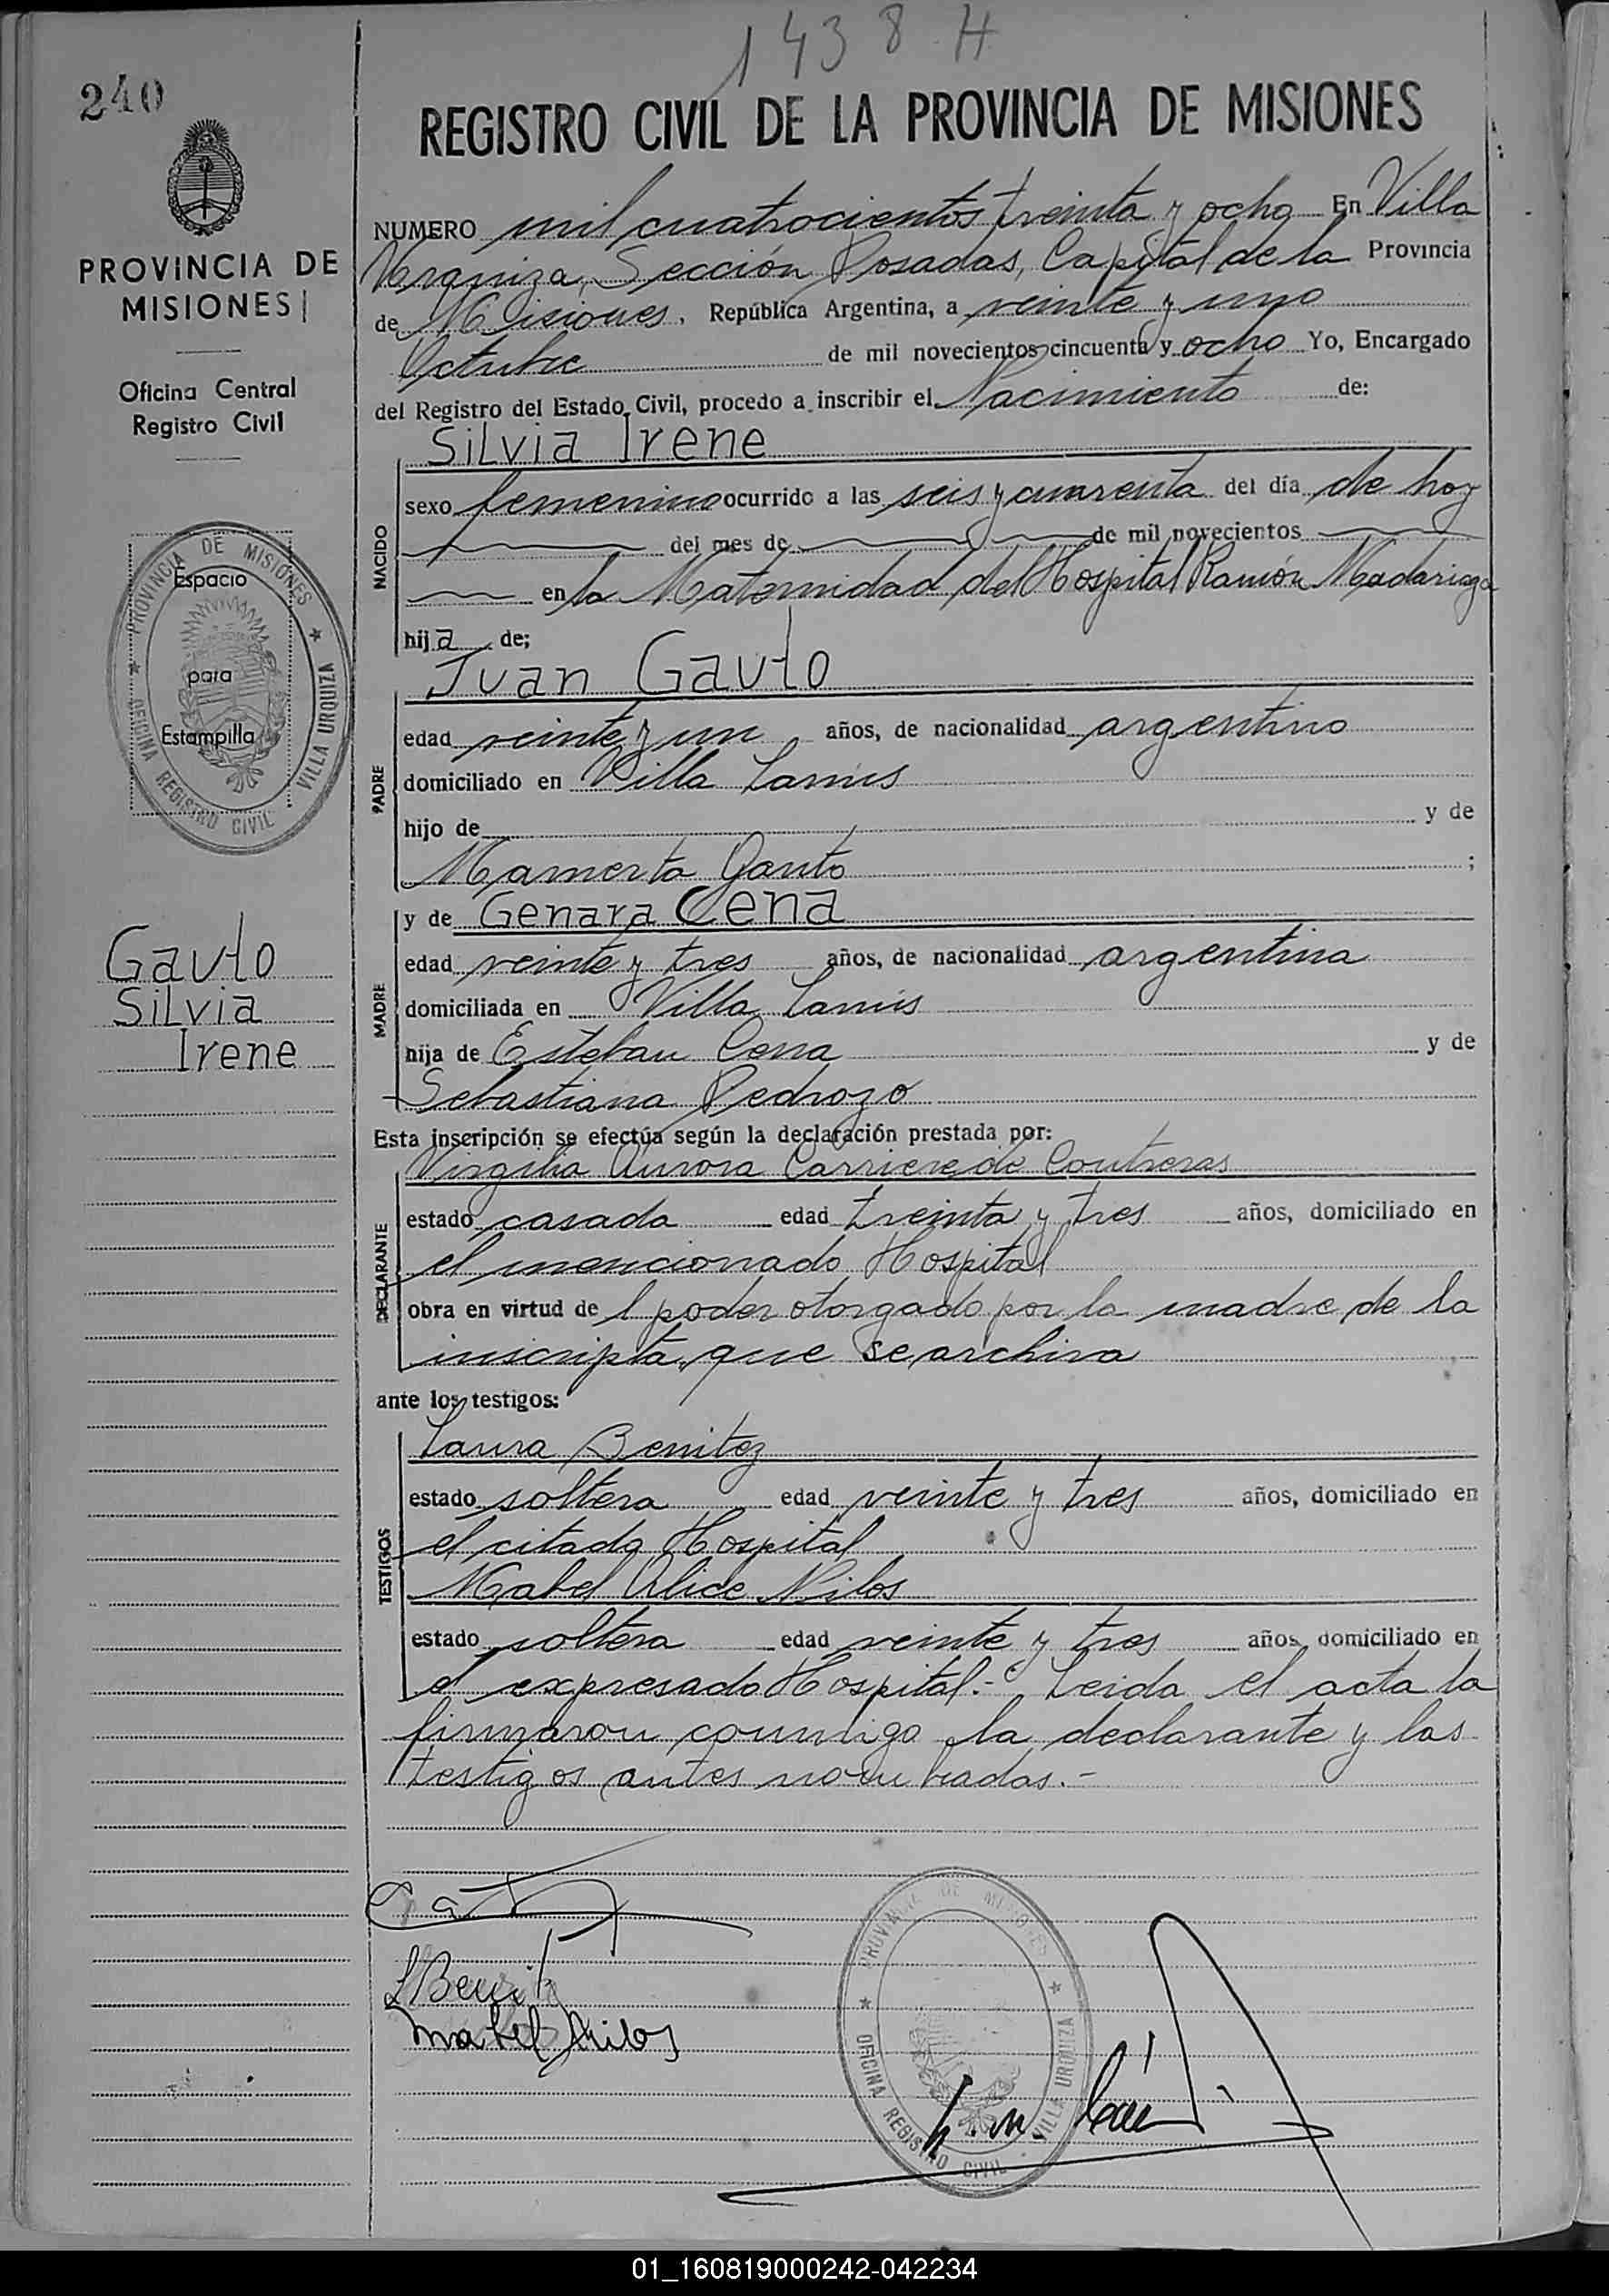 1438 H
240
REGISTRO CIVIL DE LA PROVINCIA DE MISIONES
PROVINCIA DE
MISIONES
Oficina Central
Registro Civil
PROVINCIA DE MISIONES
OFICINA REGISTRO CIVIL VILLA URQUIZA
Espacio
para
Estampilla
Gauto
Silvia
Irene
NUMERO mil cuatrocientos treinta y ocho En Villa
Urquiza, Sección Posadas, Capital de la Provincia
de Misiones, República Argentina, a veinte y uno
Octubre de mil novecientos cincuenta y ocho Yo, Encargado
del Registro del Estado Civil, procedo a inscribir el Nacimiento de:
NACIDO
Silvia Irene
sexo femenino ocurrido a las seis y cuarenta del día de hoy
del mes de de mil novecientos
en la Maternidad del Hospital Ramón Madariaga
hija de;
PADRE
Juan Gauto
edad veinte y un años, de nacionalidad argentino
domiciliado en Villa Lanús
hijo de y de
Mamerta Gauto ;
MADRE
y de Genara Cena
edad veinte y tres años, de nacionalidad argentina
domiciliada en Villa Lanús
hija de Esteban Cena y de
Sebastiana Pedrozo
Esta inscripción se efectúa según la declaración prestada por:
DECLARANTE
Virgilia Aurora Carriere de Contreras
estado casada edad treinta y tres años, domiciliado en
el mencionado Hospital
obra en virtud de l poder otorgado por la madre de la
inscripta, que se archiva
ante los testigos:
TESTIGOS
Laura Benitez
estado soltera edad veinte y tres años, domiciliado en
el citado Hospital
Mabel Alice Nilos
estado soltera edad veinte y tres años, domiciliado en
el expresado Hospital.- Leida el acta la
firmaron conmigo la declarante y los
testigos antes nombrados.-
L Benit
Mabel Nilos
PROVINCIA DE MISIONES
OFICINA REGISTRO CIVIL VILLA URQUIZA
01_160819000242-042234